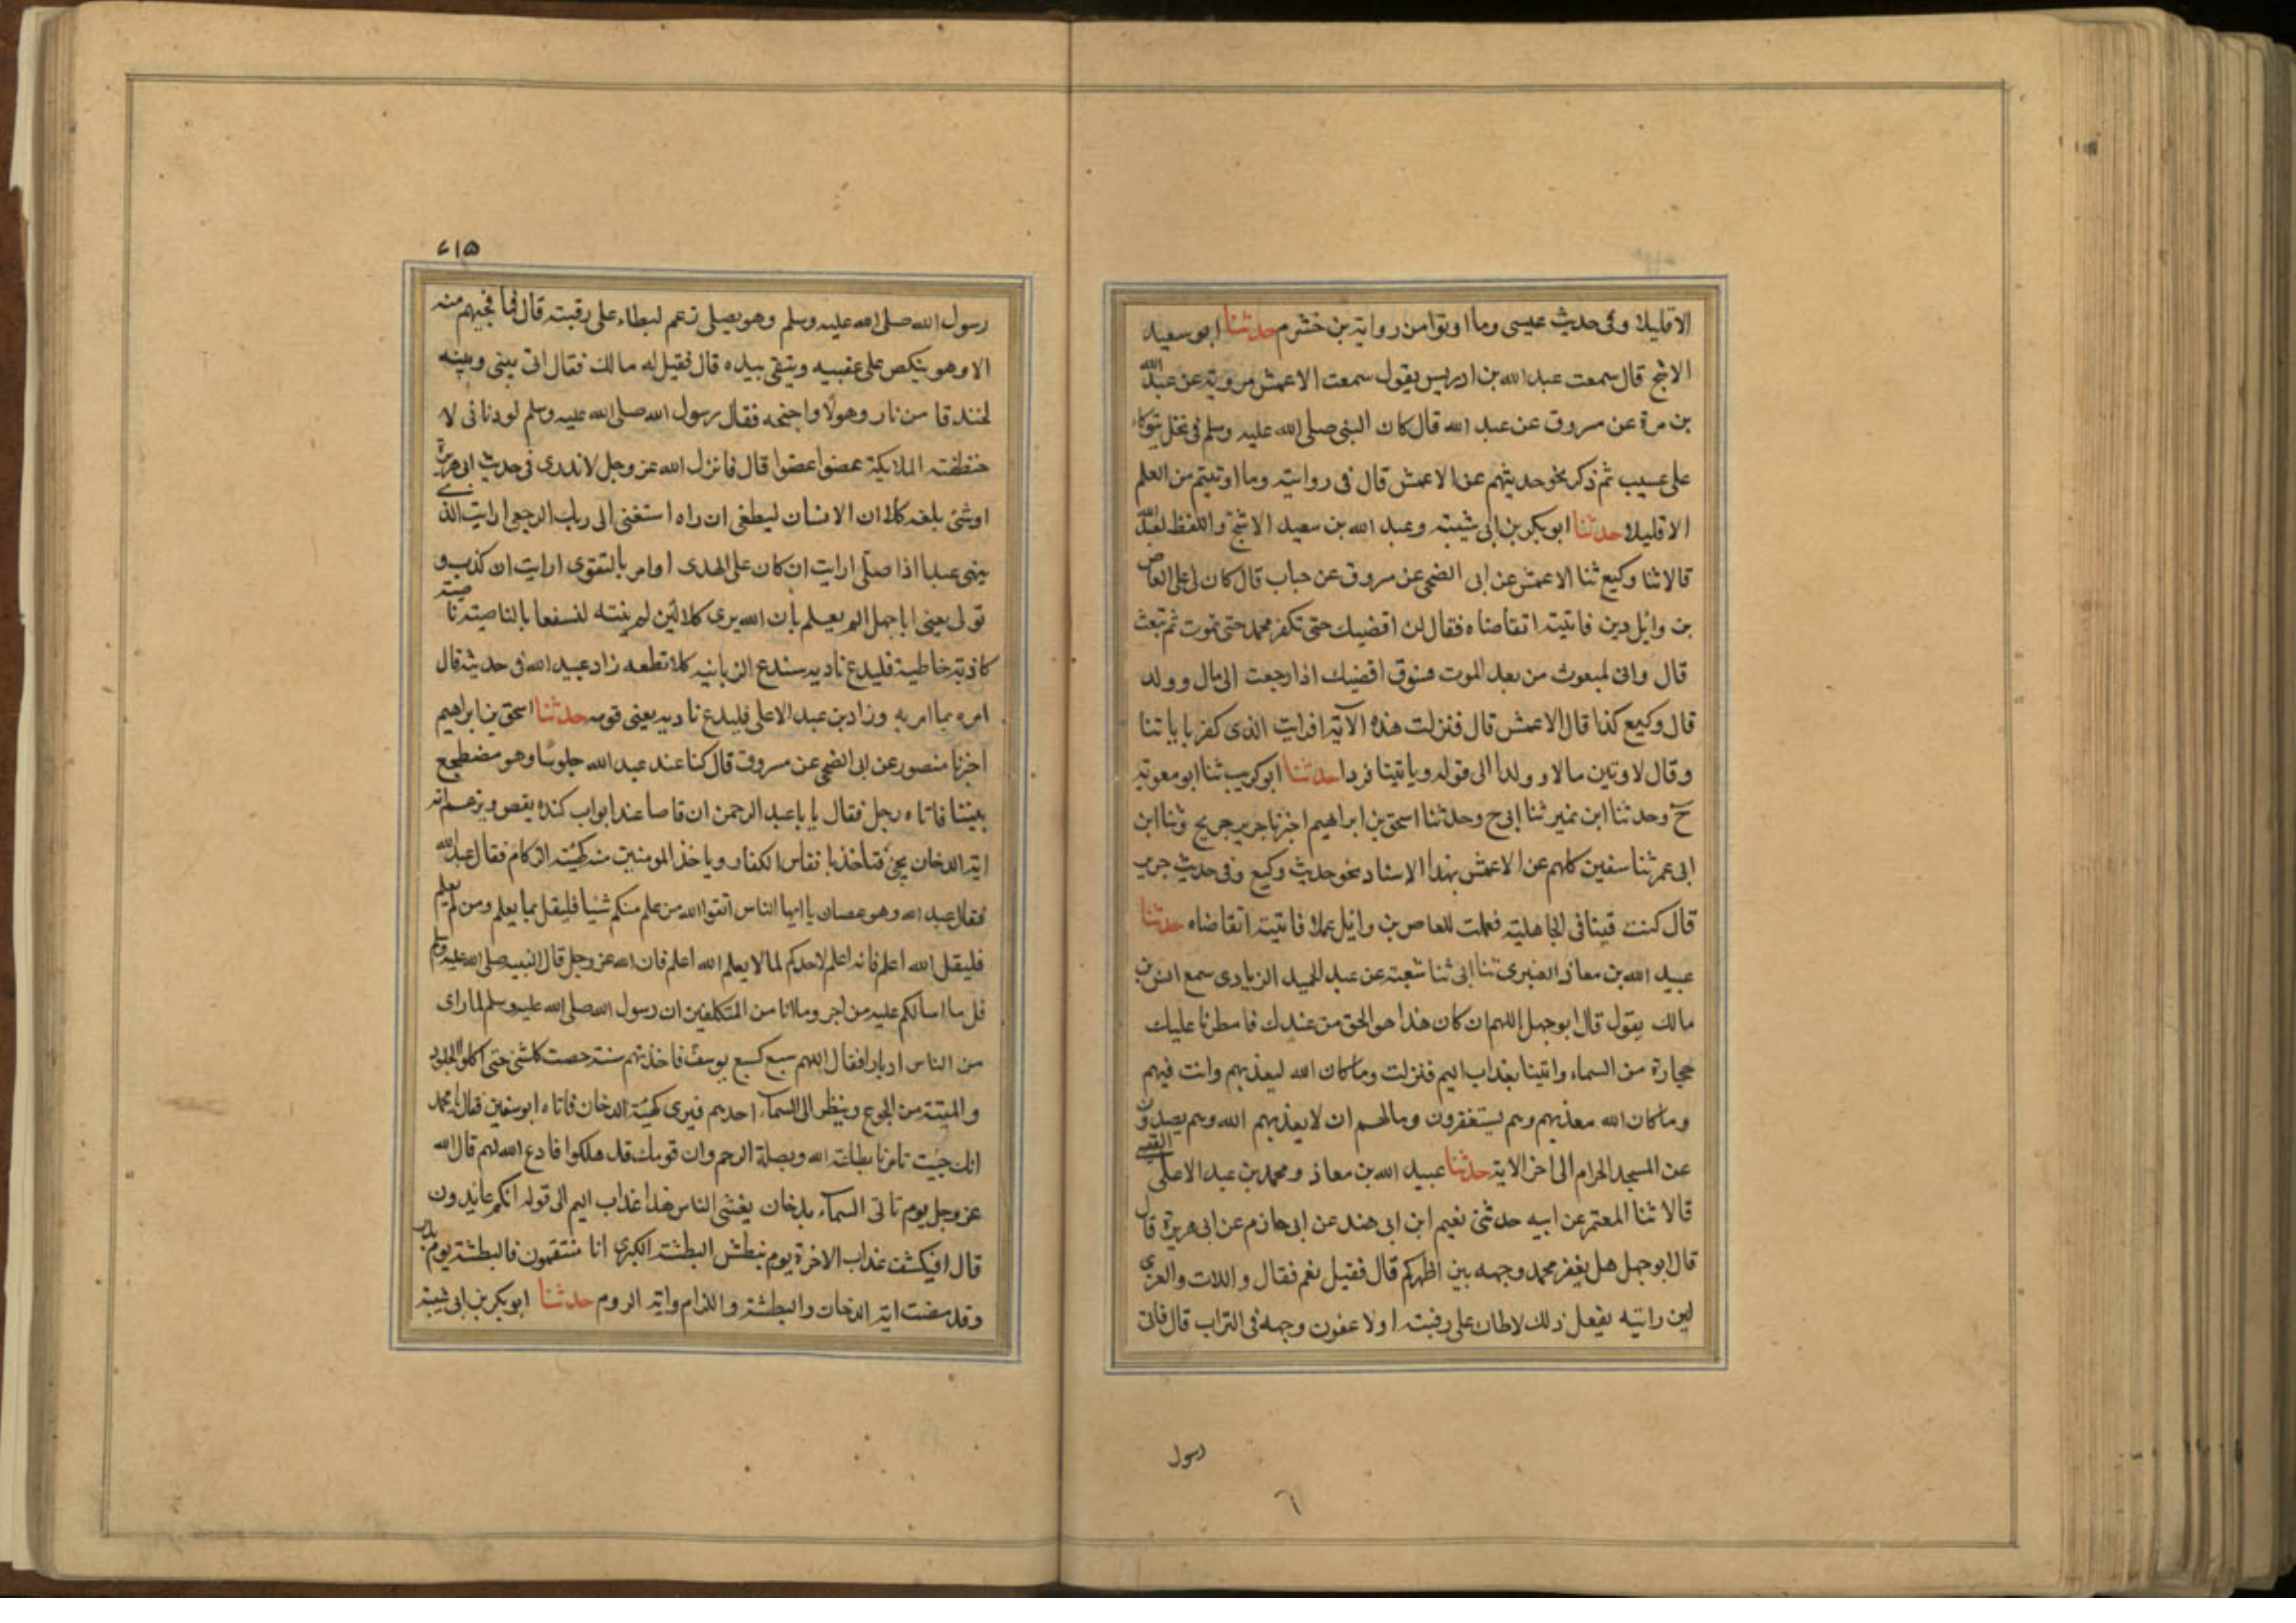 الا قليلا وفى حديث عيسى وما اوتوا من رواية بن خشرم حدثنا ابو سعيد
الاشج قال سمعت عبد الله بن ادريس يقول سمعت الاعمش يرويه عن عبد الله
بن مرة عن مسروق عن عبد الله قال كان النبى صلى الله عليه وسلم فى نخل يتوكاء
على عسيب ثم ذكر نحو حديثهم عن الاعمش قال فى روايته وما اوتيتم من العلم
الا قليلا حدثنا ابو بكر بن ابى شيبه وعبد الله بن سعيد الاشج واللفظ لعبد الله
قالا ثنا وكيع ثنا الاعمش عن ابى الضحى عن مسروق عن حباب قال كان لى على العاص
بن وائل دين فاتيته اتقاضاه فقال لن اقضيك حتى تكفر بمحمد حتى تموت ثم تبعث
قال وانى لمبعوث من بعد الموت فسوف اقضيك اذا رجعت الى مال وولد
قال وكيع كذا قال الاعمش قال فنزلت هذه الآية افرايت الذى كفر باياتنا
وقال لاوتين مالا وولدا الى قوله وياتينا فردا حدثنا ابو كريب ثنا ابو معوية
ح وحدثنا ابن نمير ثنا ابى ح وحدثنا اسحق بن ابراهيم اخبرنا جرير ح وثنا ابن
ابى عمر ثنا سفين كلهم عن الاعمش بهذا الاسناد نحو حديث وكيع وفى حديث جرير
قال كنت قينا فى الجاهلية فعملت للعاص بن وائل عملا فاتيته اتقاضاه حدثنا
عبيد الله بن معاذ العنبرى ثنا ابى ثنا شعبة عن عبد الحميد الزيادى سمع انس بن
مالك يقول قال ابو جهل اللهم ان كان هذا هو الحق من عندك فامطرنا عليك
حجارة من السماء وائتنا بعذاب اليم فنزلت وما كان الله ليعذبهم وانت فيهم
وما كان الله معذبهم وهم يستغفرون ومالهم ان لا يعذبهم الله وهم يصدون
عن المسجد الحرام الى اخر الاية حدثنا عبيد الله بن معاذ ومحمد بن عبد الاعلى القيسى
قالا ثنا المعتمر عن ابيه حدثنى نعيم ابن ابى هند عن ابى حازم عن ابى هريرة قال
قال ابو جهل هل يغفر محمد وجهه بين اظهركم قال فقيل نعم فقال واللات والعزى
لين راتيه يفعل ذلك لاطان على رقبته اولا عفرن وجهه فى التراب قال فاتى
رسول
٦
٤١٥
رسول الله صلى الله عليه وسلم وهو يصلى زعم ليطاء على رقبته قال فما فجيهم منه
الا وهو ينكص على عقبيه ويتقى بيده قال فقيل له مالك فقال انى بينى وبينه
لخندقا من نار وهولا واجنحه فقال رسول الله صلى الله عليه وسلم لو دنا فى لا
ختطفته الملايكة عضوا عضوا قال فانزل الله عز وجل لا ندرى فى حديث ابى هريرة
او شئ بلغه كلا ان الانسان ليطغى ان راه استغنى الى ربك الرجعى ارايت الذى
ينهى عبدا اذا صلى ارايت ان كان على الهدى او امر بالتقوى ارايت ان كذب و
تولى يعنى ابا جهل الم يعلم بان الله يرى كلا لئن لم ينته لنسفعا بالناصية ناصية
كاذبة خاطية فليدع ناديه سندع الزبانيه كلا تطعه زاد عبيد الله فى حديثه قال
امره بما امر به وزاد بن عبد الاعلى فليدع ناديه يعنى قومه حدثنا اسحق بن ابراهيم
اخبرنا منصور عن ابى الضحى عن مسروق قال كنا عند عبد الله جلوسا وهو مضطجع
بيننا فاتاه رجل فقال يا با عبد الرحمن ان قاصا عند ابواب كنده يقص ويزعم انه
اية الدخان يجئ فتاخذ با نفاس الكفار وياخذ المومنين منه كهيئة الزكام فقال عبد الله
فقال عبد الله وهو عصبان يا ايها الناس اتقوا الله من علم منكم شئيا فليقل بما يعلم ومن لم يعلم
فليقل الله اعلم فانه اعلم لاحدكم لما لا يعلم الله اعلم فان الله عز وجل قال لنبيه صلى الله عليه وسلم
قل ما اسالكم عليه من اجر وما انا من المتكلفين ان رسول الله صلى الله عليه وسلم لما راى
من الناس ادبارا فقال اللهم سبع كسبع يوسف فاخذتهم سنة حصت كل شئ حتى اكلوا الجلود
والميتة من الجوع وينظر الى السماء احدهم فيرى كهيئة الدخان فاتاه ابو سفين فقال يا محمد
انك جيت تامرنا بطاعة الله وبصلة الرحم وان قومك قد هلكوا فادع الله لهم قال الله
عز وجل يوم تاتى السماء بدخان يغشى الناس هذا عذاب اليم الى قوله انكم عايدون
قال افيكشف عذاب الاخرة يوم نبطش البطشة الكبرى انا منتقمون فالبطشة يوم بدر
وقد مضت اية الدخان والبطشة واللزام واية الروم حدثنا ابو بكر بن ابى شيبة